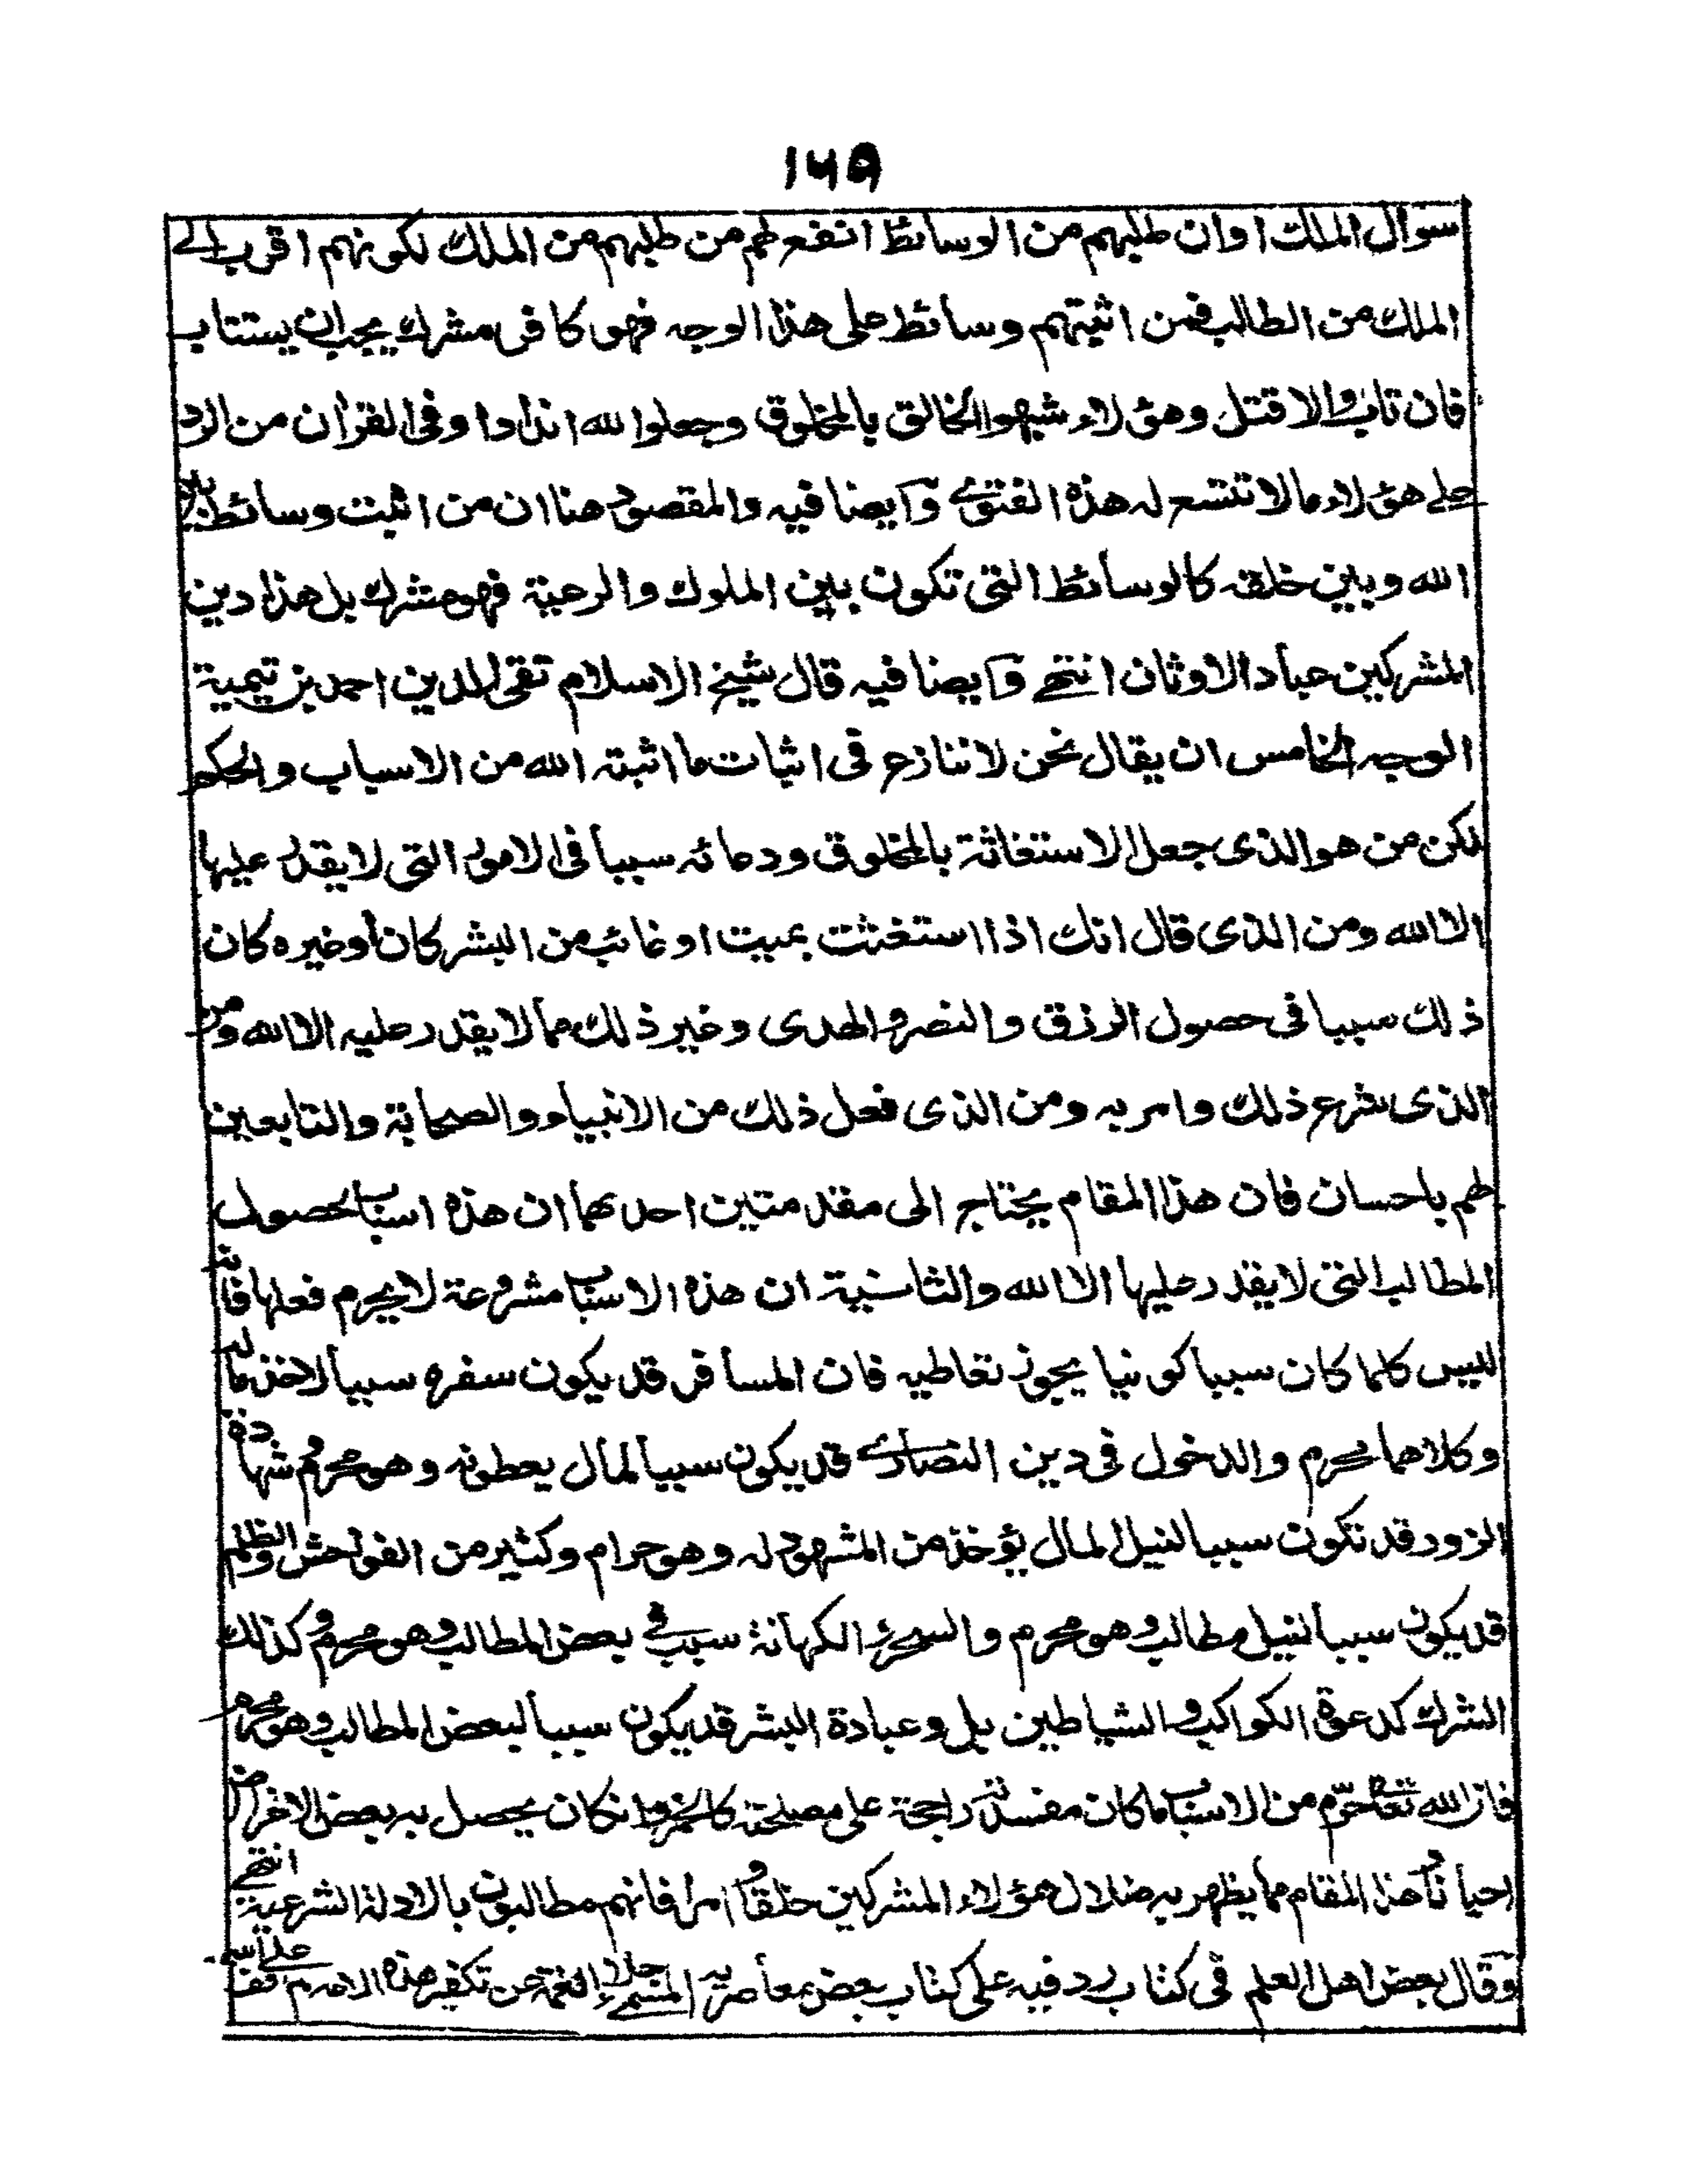 ١٧٩
سؤال الملك او ان طلبهم من الوسائط انفع لهم من طلبهم من الملك لكونهم اقرب الى
الملك من الطالب فمن اثبتهم وسائط على هذا الوجه فهو كافر مشرك يجب ان يستتاب
فان تاب والا قتل وهؤلاء شبهوا الخالق بالمخلوق وجعلوا لله اندادا وفي القرآن من الرد
على هؤلاء ما لا تتسع له هذه الفتوى وايضا فيه والمقصود هنا ان من اثبت وسائط بين
الله وبين خلقه كالوسائط التي تكون بين الملوك والرعية فهو مشرك بل هذا دين
المشركين عباد الاوثان انتهى وايضا فيه قال شيخ الاسلام تقي الدين احمد بن تيمية
الوجه الخامس ان يقال نحن لا ننازع في اثبات ما اثبته الله من الاسباب والحكم
لكن من هو الذي جعل الاستغاثة بالمخلوق ودعائه سببا في الامور التي لا يقدر عليها
الا الله ومن الذي قال انك اذا استغثت بميت او غائب من البشر كان او غيره كان
ذلك سببا في حصول الرزق والنصر والهدى وغير ذلك مما لا يقدر عليه الا الله ومن
الذي شرع ذلك وامر به ومن الذي فعل ذلك من الانبياء والصحابة والتابعين
لهم باحسان فان هذا المقام يحتاج الى مقدمتين احدهما ان هذه اسباب لحصول
المطالب التي لا يقدر عليها الا الله والثانية ان هذه الاسباب مشروعة لا يحرم فعلها فانه
ليس كلما كان سببا كونيا يجوز تعاطيه فان المسافر قد يكون سفره سببا لاخذ ماله
وكلاهما محرم والدخول في دين النصارى قد يكون سببا لمال يعطونه وهو محرم وشهادة
الزور قد تكون سببا لنيل المال يؤخذ من المشهود له وهو حرام وكثير من الفواحش والظلم
قد يكون سببا لنيل مطالب وهو محرم والسحر والكهانة سبب في بعض المطالب وهو محرم وكذلك
الشرك كدعوة الكواكب والشياطين بل وعبادة البشر قد يكون سببا لبعض المطالب وهو محرم
فان الله تعالى حرّم من الاسباب ما كان مفسدته راجحة على مصلحته كالخمر وان كان يحصل به بعض الاغراض
احيانا وهذا المقام مما يظهر به ضلال هؤلاء المشركين خلقا وامرا فانهم مطالبون بالادلة الشرعية انتهى
وقال بعض اهل العلم في كتاب رد فيه على كتاب بعض معاصريه المسمى جلاء الغمة عن تكفير هذه الامة